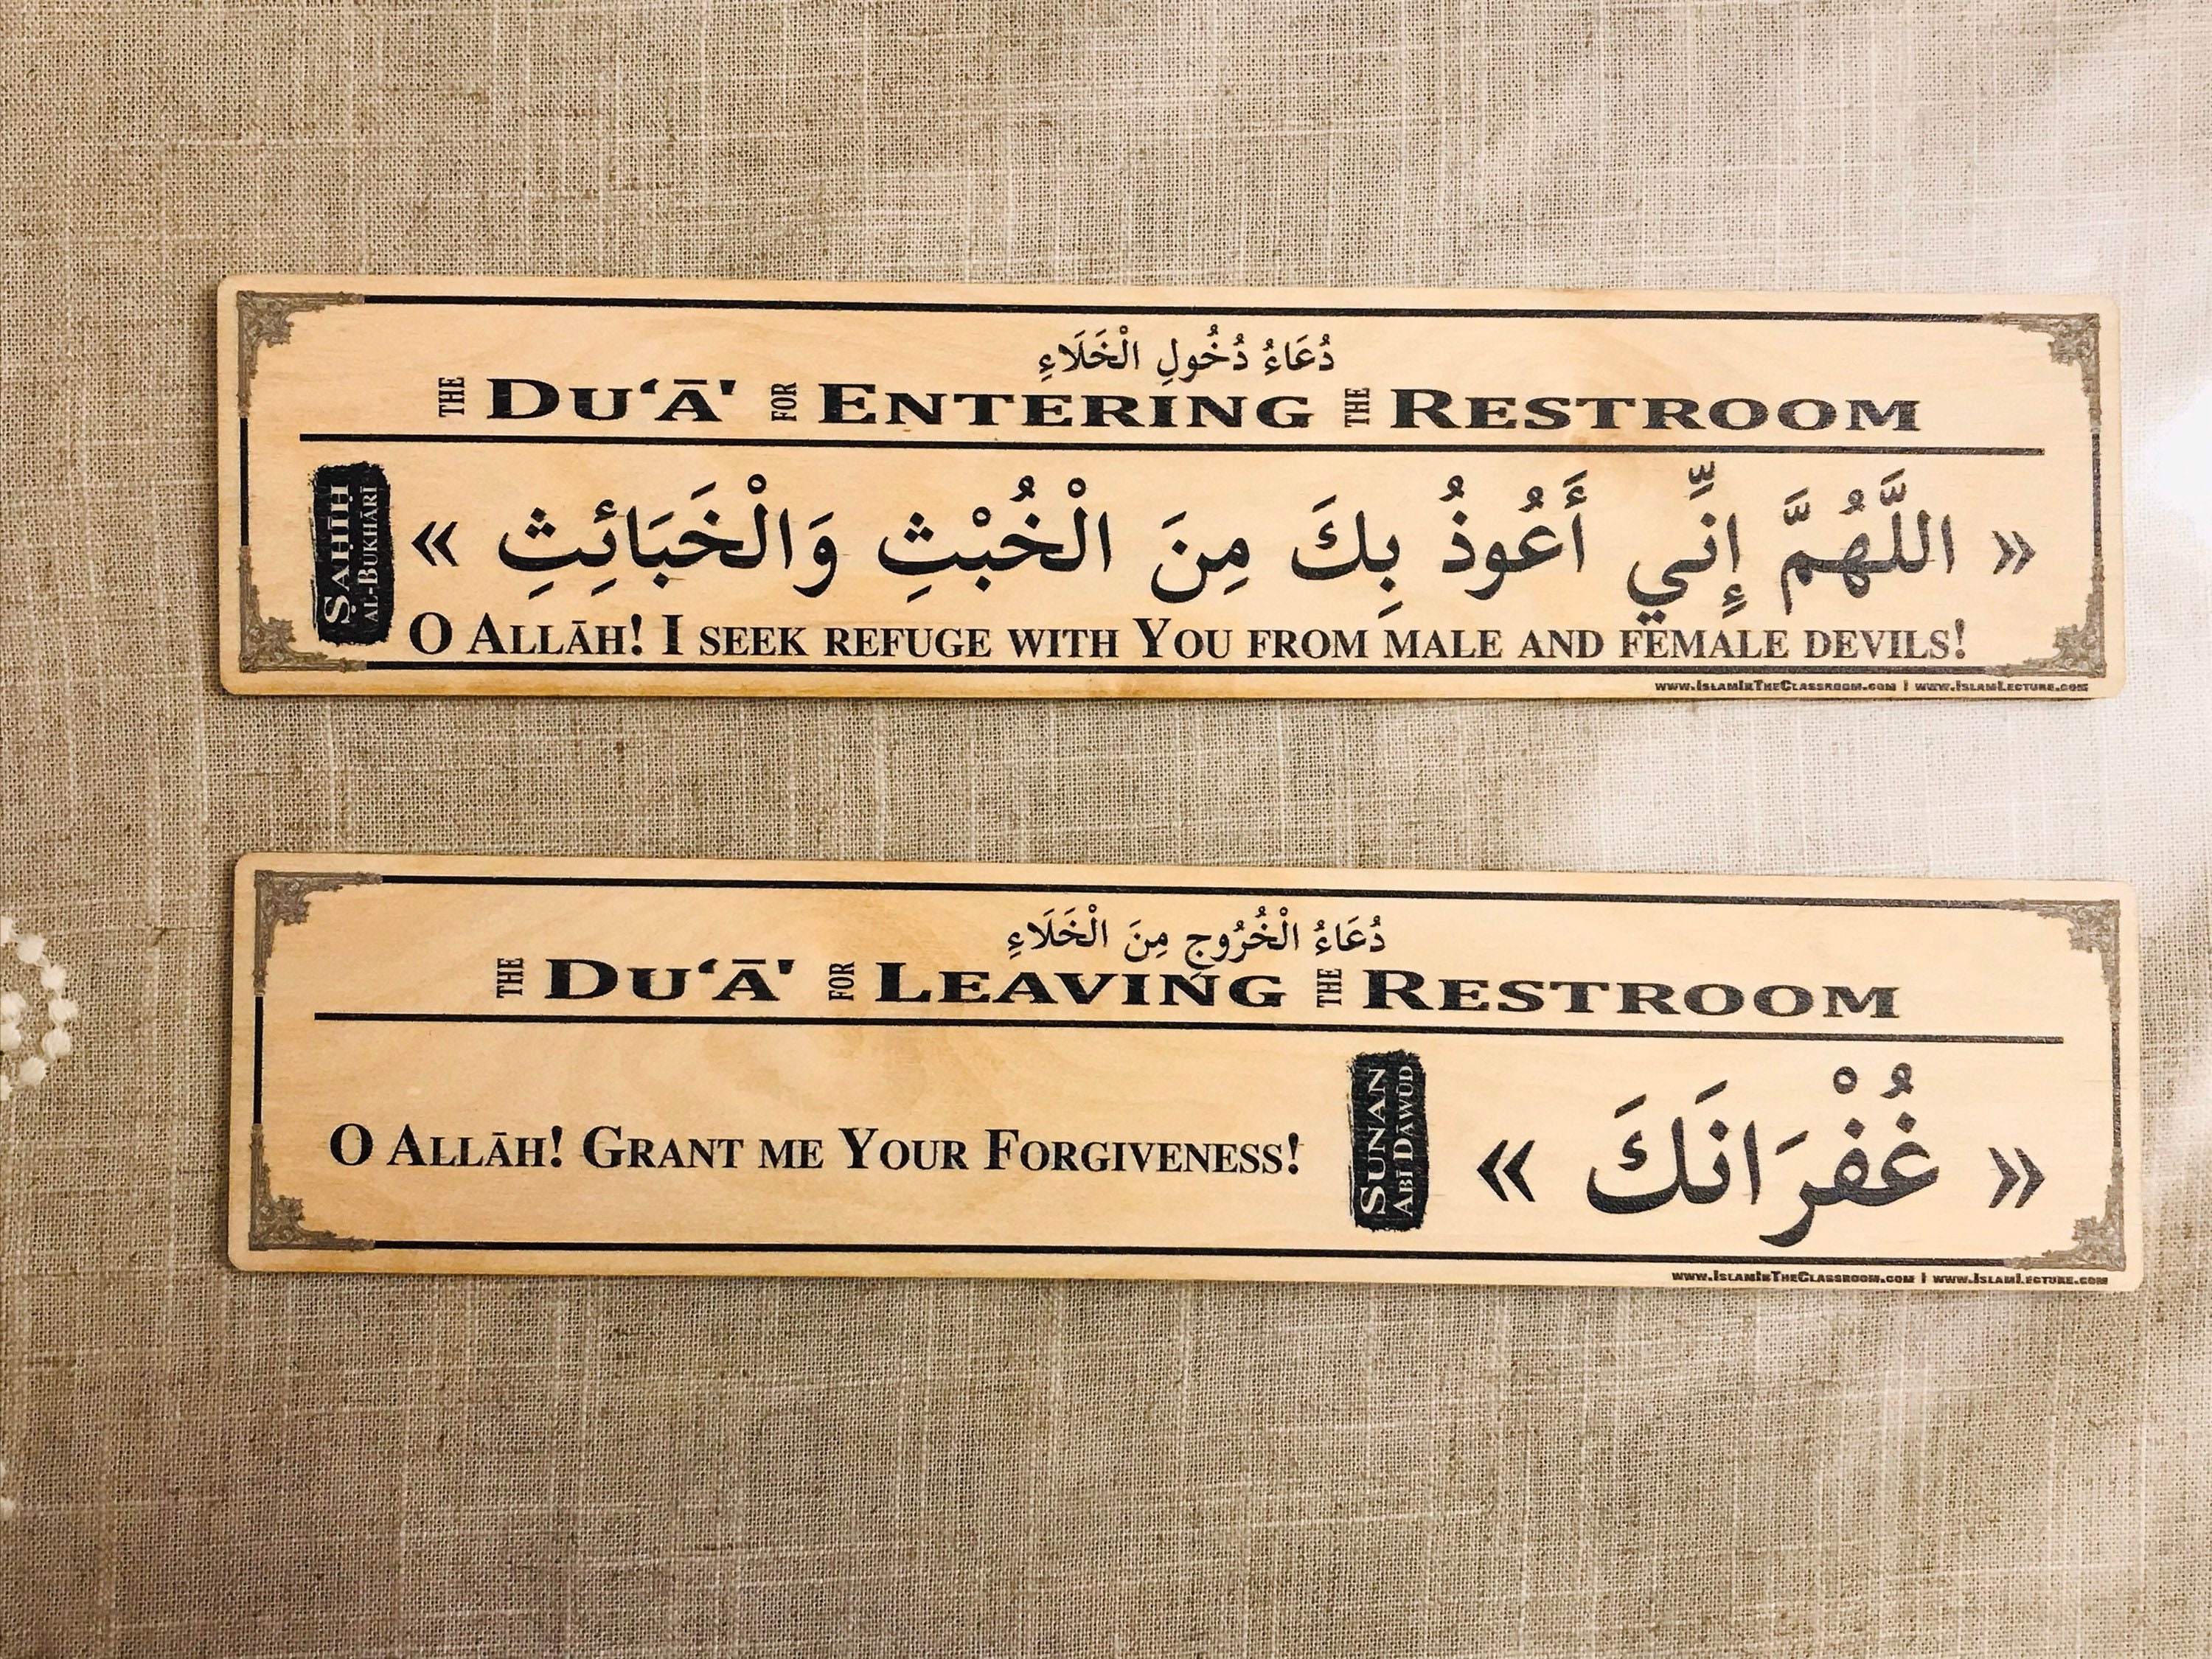 دُعَاءُ دُخُولِ الْخَلَاءِ
THE DU‘Ā' FOR ENTERING THE RESTROOM
« اللَّهُمَّ إِنِّي أَعُوذُ بِكَ مِنَ الْخُبْثِ وَالْخَبَائِثِ »
ṢAḤĪḤ
AL-BUKHĀRĪ
O ALLĀH! I SEEK REFUGE WITH YOU FROM MALE AND FEMALE DEVILS!
WWW.ISLAMINTHECLASSROOM.COM | WWW.ISLAMLECTURE.COM
دُعَاءُ الْخُرُوجِ مِنَ الْخَلَاءِ
THE DU‘Ā' FOR LEAVING THE RESTROOM
O ALLĀH! GRANT ME YOUR FORGIVENESS!
SUNAN
ABĪ DĀWŪD
« غُفْرَانَكَ »
WWW.ISLAMINTHECLASSROOM.COM | WWW.ISLAMLECTURE.COM